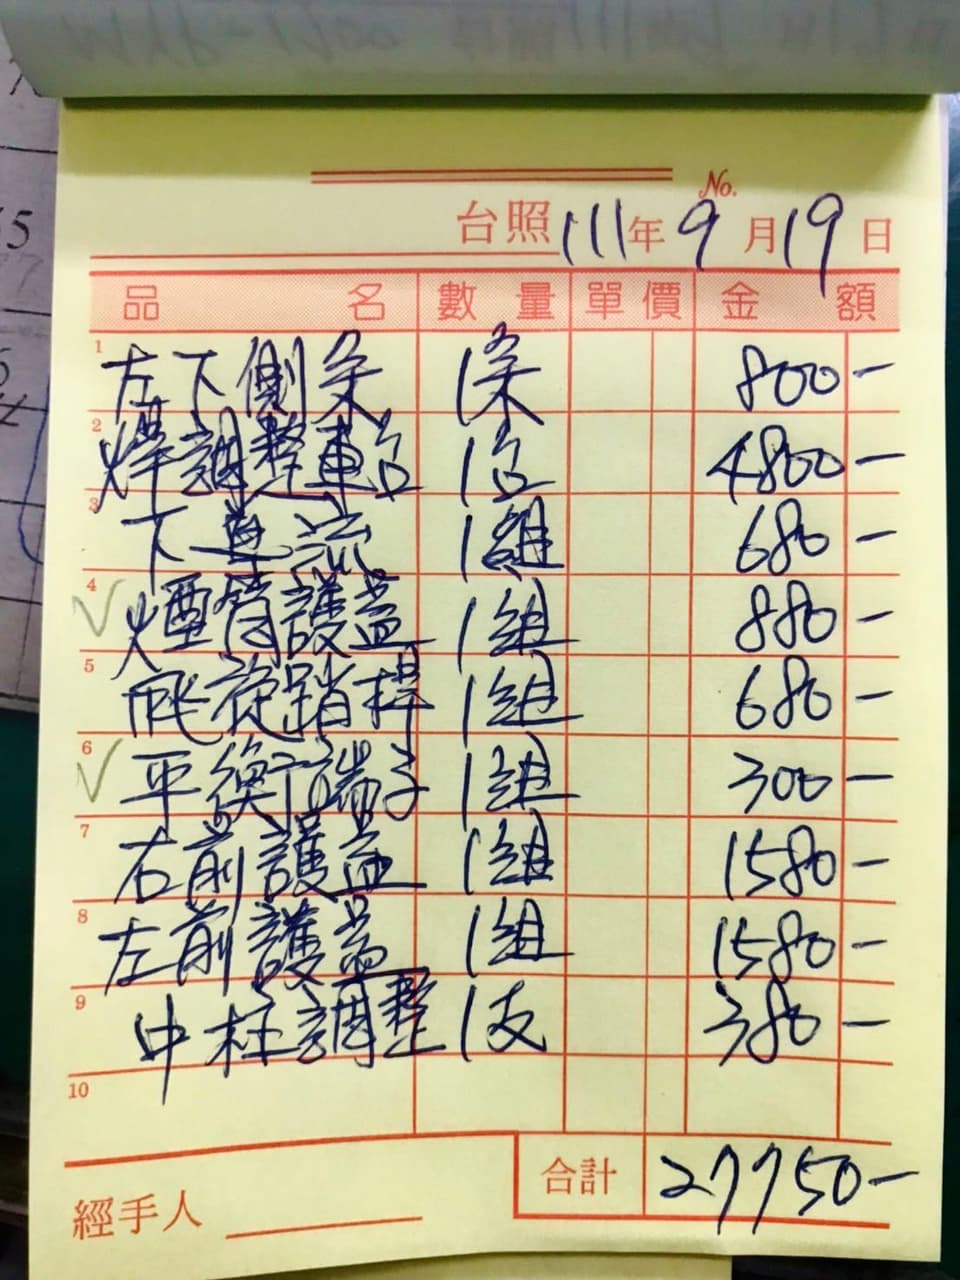 No.
台照 111年 9月 19日
品名 數量 單價 金額
1 左下側条 1条 800-
2 焊調整車台 1台 4800-
3 下導流 1組 680-
4 煙管護蓋 1組 880-
5 飛旋踏桿 1組 680-
6 平衡端子 1組 300-
7 右前護蓋 1組 1580-
8 左前護蓋 1組 1580-
9 中柱調整 1支 380-
10
合計 27750-
經手人